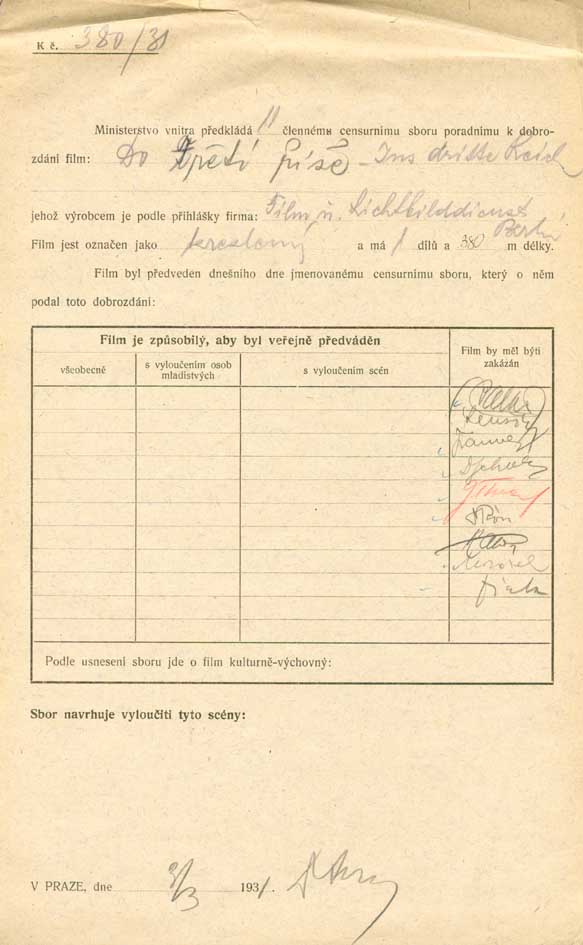 K č. 380/31
Ministerstvo vnitra předkládá 11 člennému censurnímu sboru poradnímu k dobro-
zdání film: Do Třetí říše - Ins dritte Reich
jehož výrobcem je podle přihlášky firma: Film u. Lichtbilddienst
Berlin
Film jest označen jako a má 1 dílů a 380 m délky.
Film byl předveden dnešního dne jmenovanému censurnímu sboru, který o něm
podal toto dobrozdání:
Film je způsobilý, aby byl veřejně předváděn
Film by měl býti
zakázán
všeobecně
s vyloučením osob
mladistvých
s vyloučením scén
Podle usnesení sboru jde o film kulturně-výchovný:
Sbor navrhuje vyloučiti tyto scény:
V PRAZE, dne 3/3 1931.